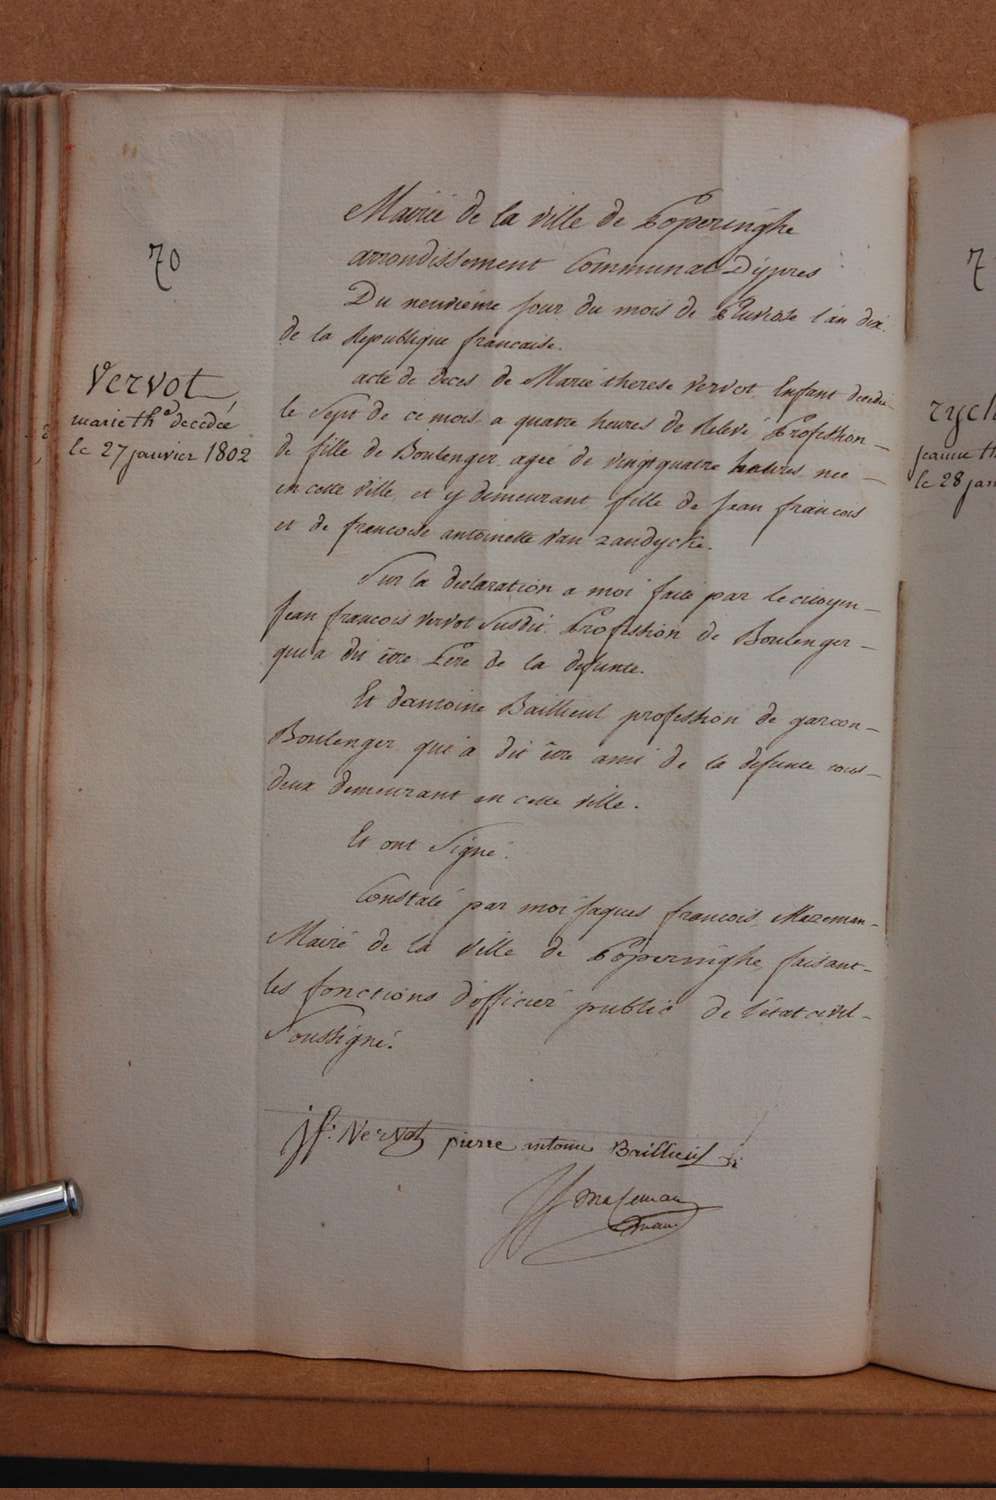 70
Vervot
marie th.e decedée
le 27 janvier 1802
Mairié de la ville de Poperinghe
arrondissement Communal D'ÿpres
Du neuvieme Jour du mois de Pluviose l'an dix.
de la Republique francaise.
acte de deces de Marie therese vervot Enfant decedé
le Sept de ce mois a quatre heures de Relevé Profession
de fille de Boulenger agée de vingt quatre heures née
en cette ville et y demeurant fille de Jean francois
et de francoise antoinette Van zandycke.
Sur la declaration a moi faite par le citoyen
Jean francois vervot Susdit Profession de Boulenger
qui a dit être Pere de la defunte.
Et d'antoine Baillieul profession de garcon
Boulenger qui a dit être ami de la defunte tous
deux demeurant en cette ville.
Et ont Signé.
Constaté par moi Jaques francois Mazeman
Mairé de la Ville de Poperinghe faisant
les fonctions d'officier public de l'état civil
Soussigné.
jf: Vervot pierre antoine Baillieul
JJ maseman
maire
7
ryck
jeanne th
le 28 jan